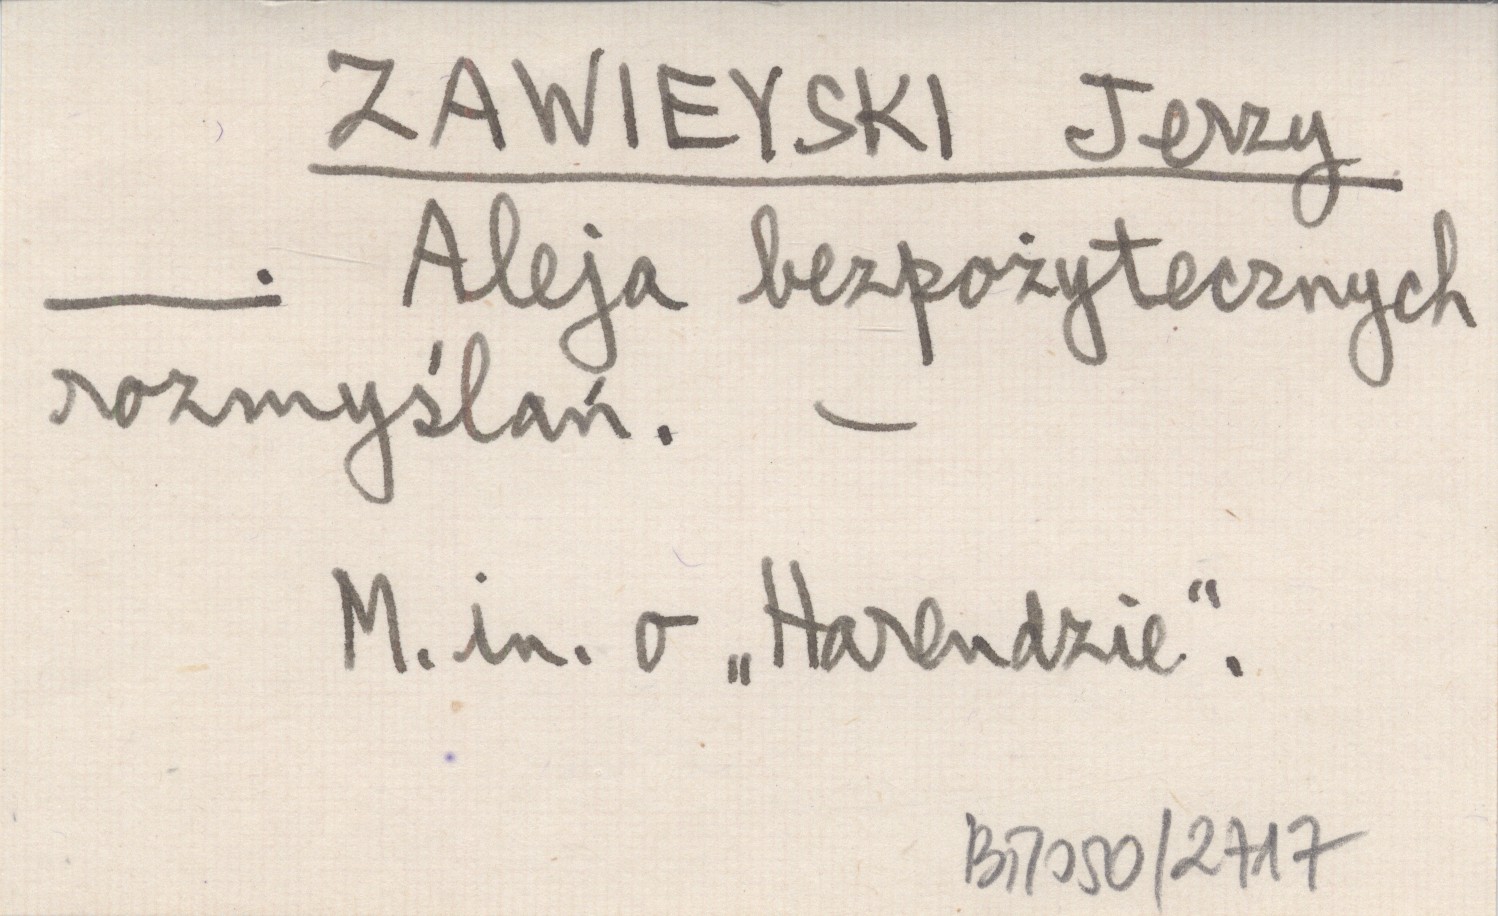 ZAWIEYSKI Jerzy
____. Aleja bezpożytecznych
rozmyślań. —
M. in. o „Harendzie“.
/2717